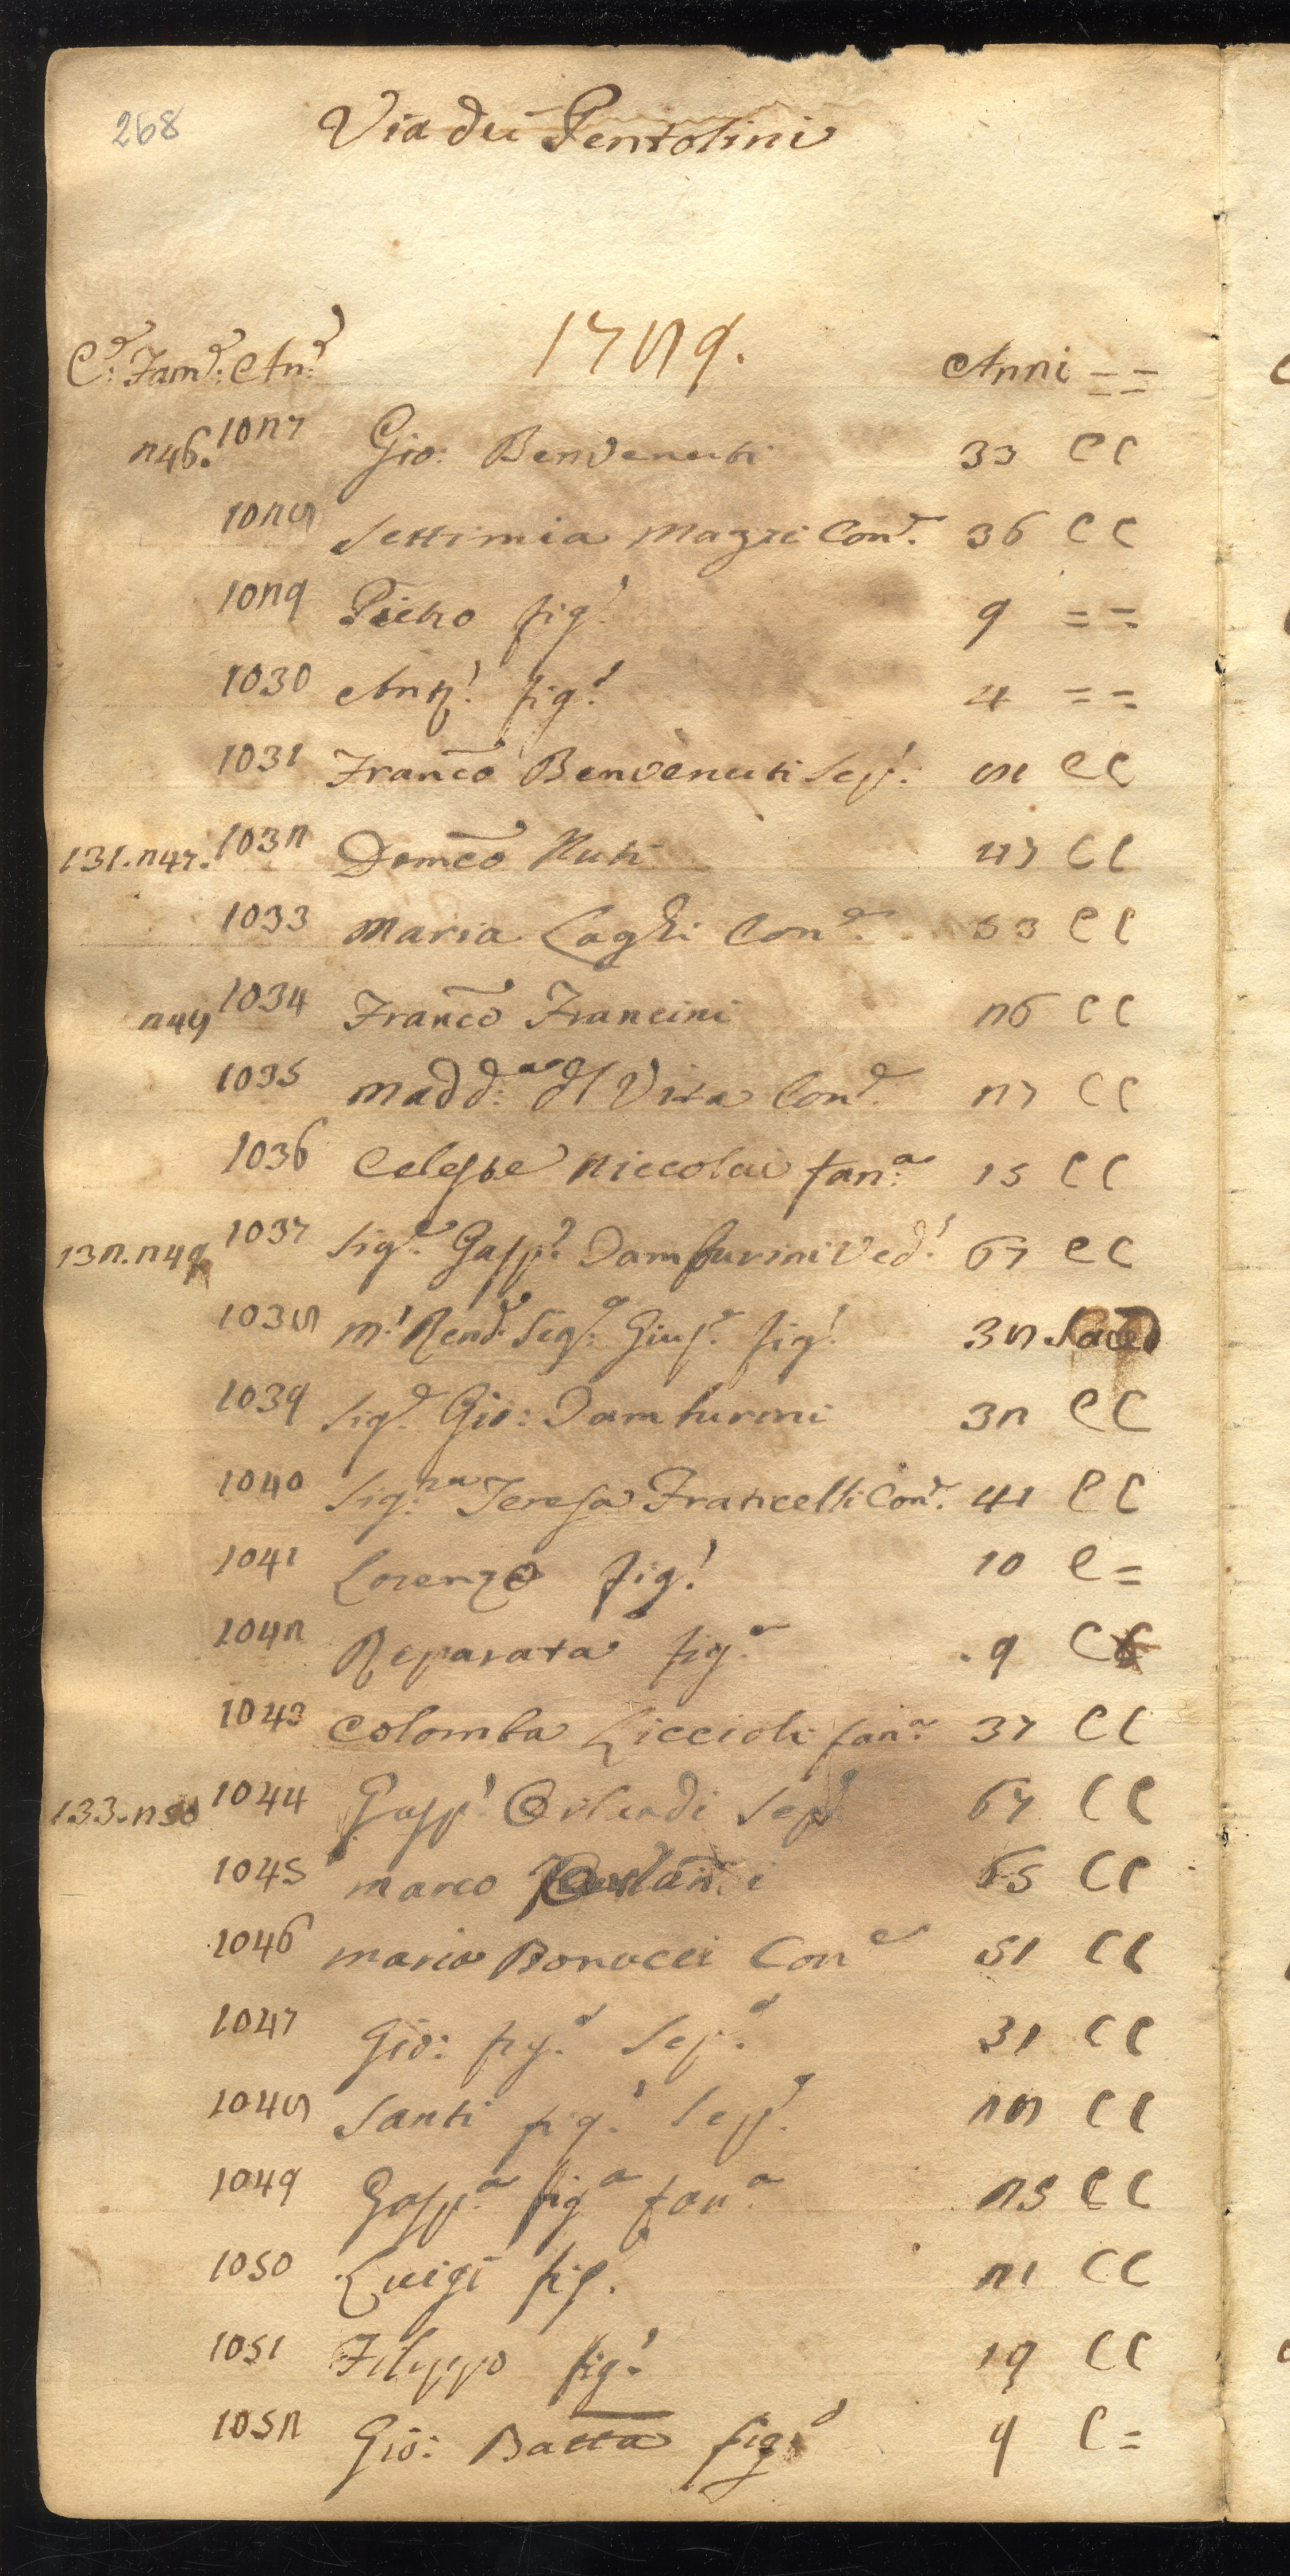 268
Via dei Pentolini
1789.
C.e: Fam.e: An.e Anni = =
246. 1027 Gio: Benvenuti 33 C C
1028 Settimia Magri Con.e 36 C C
1029 Pietro fig.o 9 = =
1030 Ant.o fig.o 4 = =
1031 Franco Benvenuti Sep.o 81 C C
131. 247. 1032 Domco Nuti 47 C C
1033 Maria Laghi Con.e 53 C C
248 1034 Franco Francini 26 C C
1035 Madd:a dl Vita Con.e 27 C C
1036 Celeste Niccolai fan:a 15 C C
132. 249 1037 Sig.e Gasp.e Tamburini Ved.o 67 C C
1038 M.o Rend.o Sig.e Gius.e fig.o 38 Sacerd
1039 Sig.e Gio: Tamburini 32 C C
1040 Sig:ra Teresa Fraticelli Con.e 41 C C
1041 Lorenzo fig.o 10 C =
1042 Reparata fig.a 9 C
1043 Colomba Liccioli fan:a 37 C C
133. 250 1044 Gasp.o Orlandi Sep.o 67 C C
1045 Marco Orlandi 65 C C
1046 Maria Bonucci Con.e 51 C C
1047 Gio: fig.o Sep.o 31 C C
1048 Santi fig.o Sep.o 28 C C
1049 Gasp.a fig.a fan.a 25 C C
1050 Luigi fig. 21 C C
1051 Filippo fig.o 19 C C
1052 Gio: Batta fig.o 9 C =